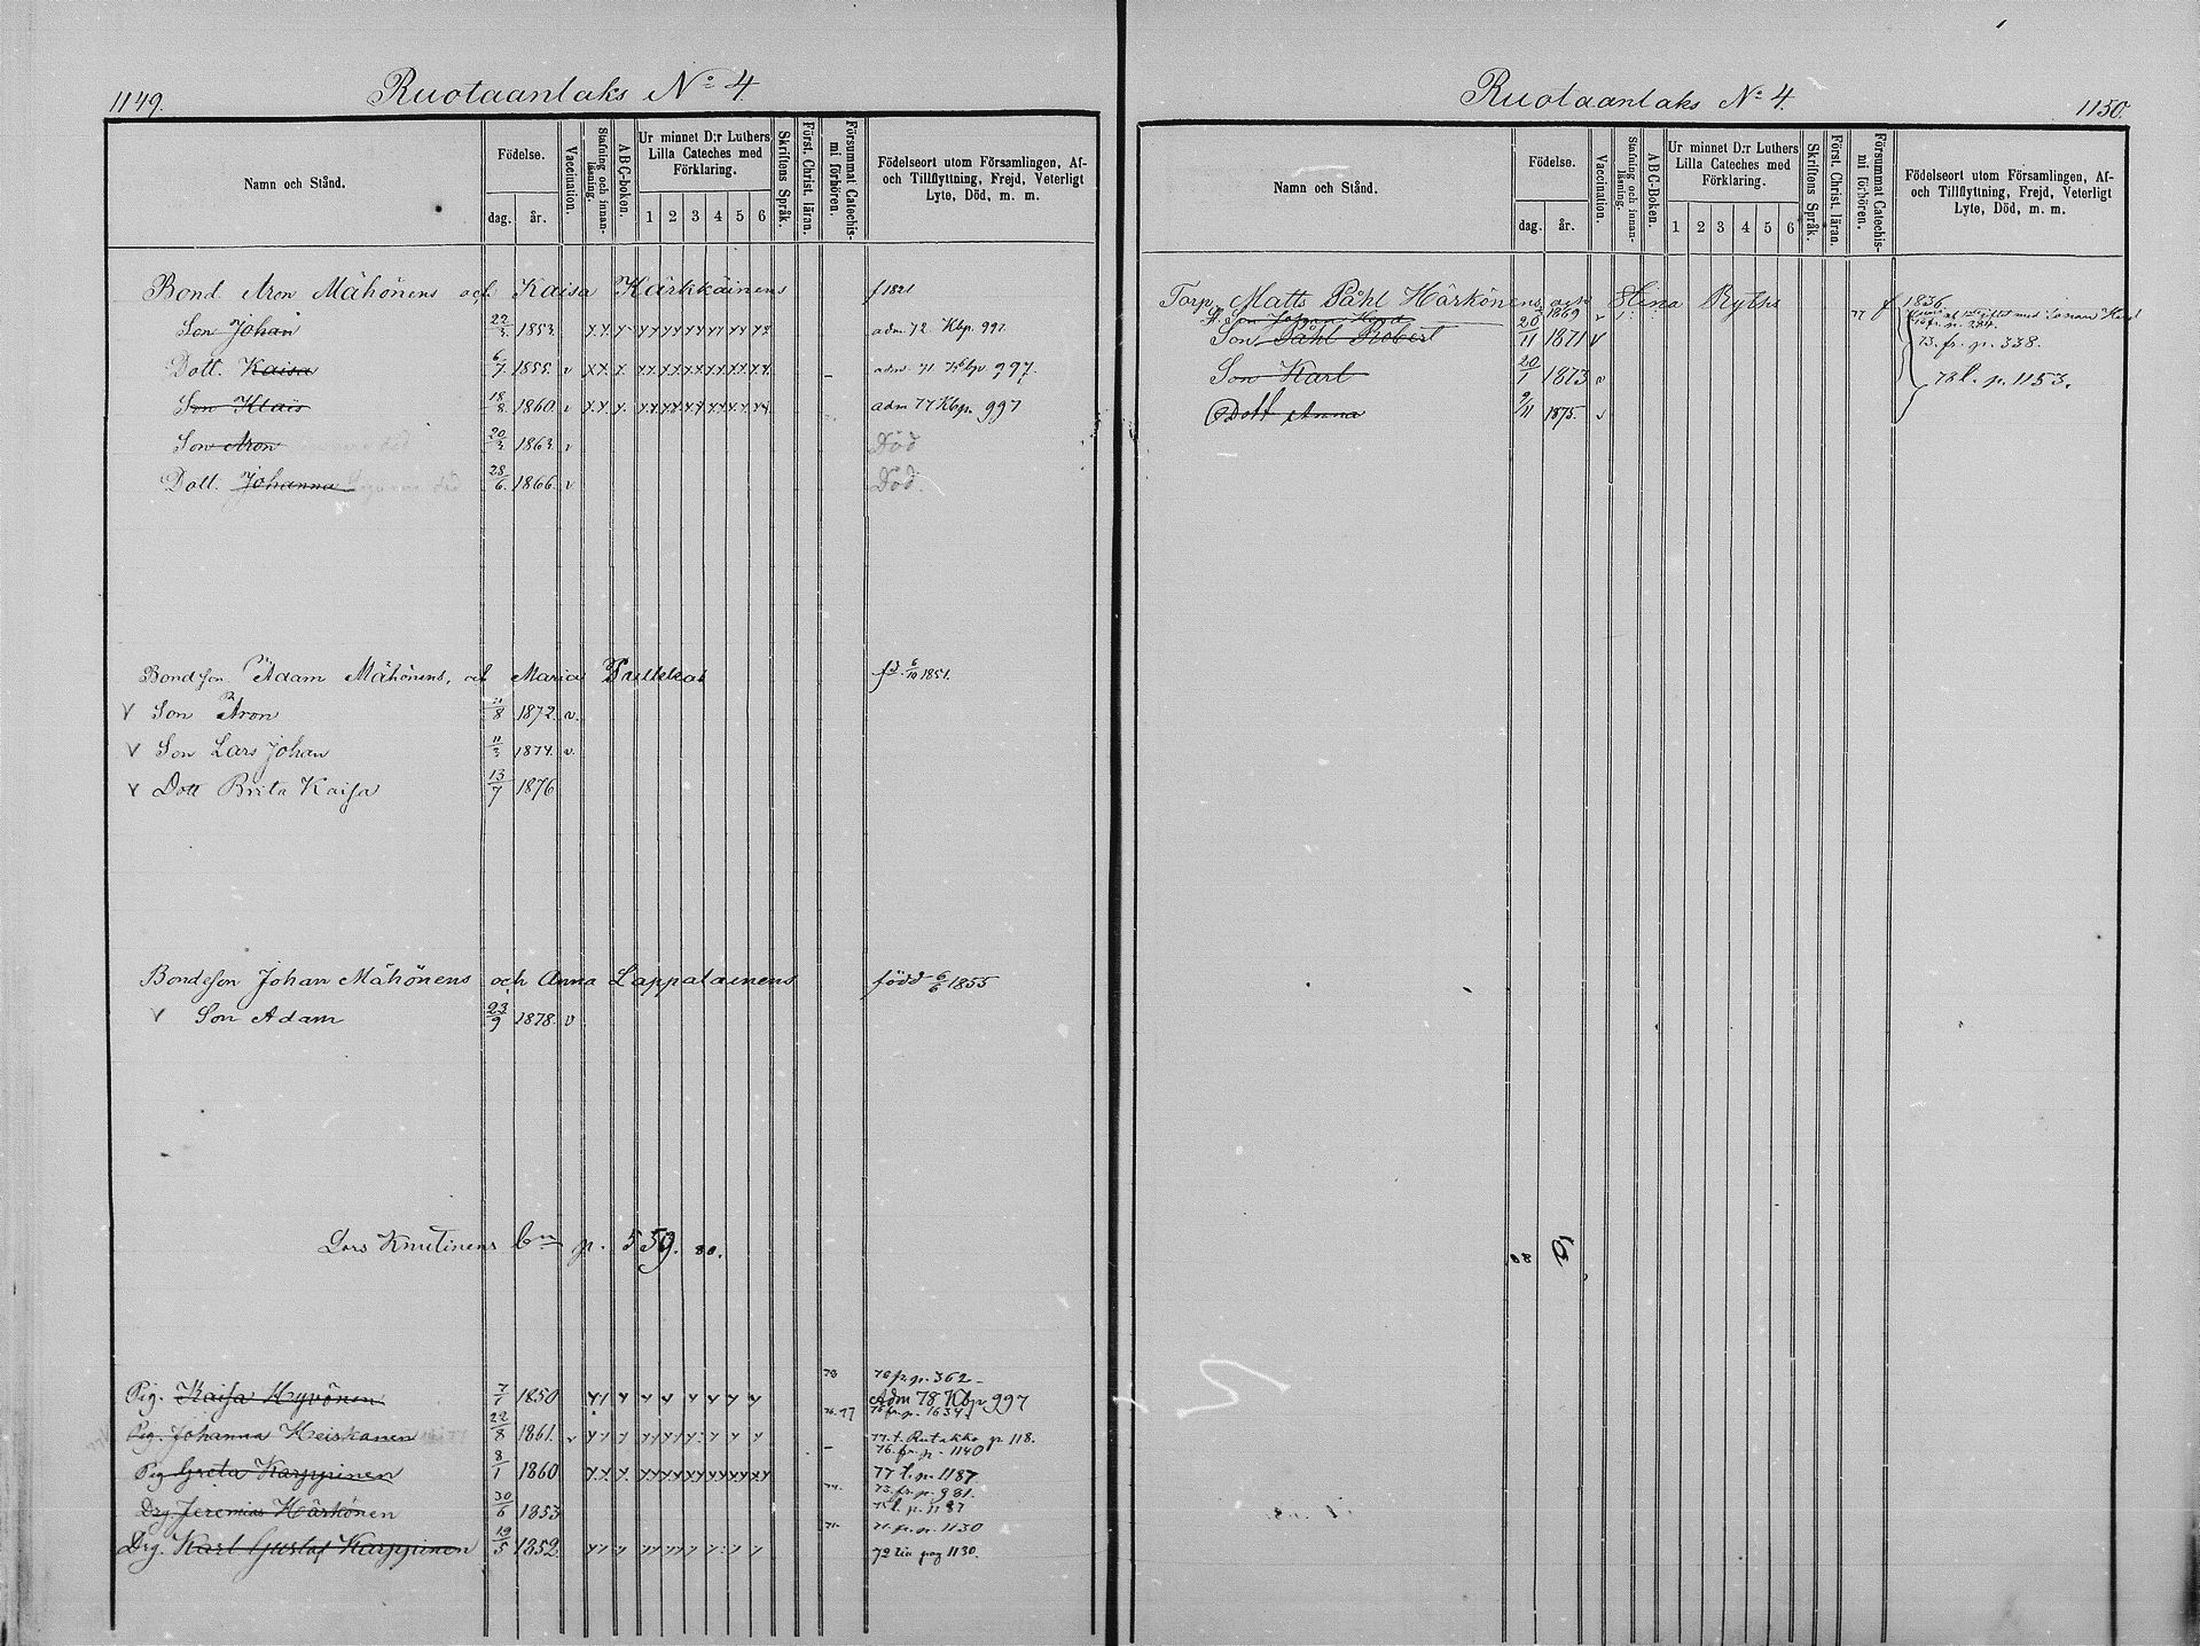 1149.
Ruotaanlaks No 4
Namn och Stånd.
Födelse.
dag. år.
Vaccination.
Stafning och innanläsning.
ABC-boken.
Ur minnet D:r Luthers Lilla Cateches med Förklaring.
1 2 3 4 5 6
Skriftens Språk.
Först. Christ. läran.
Försummat Catechismi förhören.
Födelseort utom Församlingen, Af- och Tillflyttning, Frejd, Veterligt Lyte, Död, m. m.
Bond. Aron Mähönens och Kaisa Härkkäinens f 1821
Son Johan 22/3 1853. adm. 72 Kbp. 997.
Dott. Kaisa 6/7 1855. v adm. 71 Kbp. 997.
Son Klais 18/8 1860. v adm 77 Kbp. 997
Son Aron 20/3 1863. v Död
Dott. Johanna 28/6 1866. v Död.
Bondeson Adam Mähönens, och Maria Pulkkas fd. 6/10 1851.
v Son Aron 11/8 1872. v.
v Son Lars Johan 11/3 1874. v.
v Dott Brita Kaisa 13/7 1876
Bondeson Johan Mähönens och Anna Lappalainens född 6/6 1855
v Son Adam 23/9 1878. v
Lars Knutinens bn p. 559. 80.
78 78 fr. p. 362
Pig. Kaisa Hyvönen 7/7 1850 Adm 78 Kbp 997
76. 77
Pig. Johanna Heiskanen 22/8 1861. v 77. t. Rutakko p. 118.
76. fr. p. 1140
Pig Greta Karppinen 8/1 1860 77 t. p. 1187.
73. fr. p. 981.
Drg Jeremias Härkönen 30/6 1853 t. p. 1187
71. fr. p. 1130
Drg. Karl Gustaf Karppinen 19/5 1852 72 till pag 1130.
Ruotaanlaks No 4.
1150.
Namn och Stånd.
Födelse.
dag. år.
Vaccination.
Stafning och innanläsning.
ABC-Boken.
Ur minnet D:r Luthers Lilla Cateches med Förklaring.
1 2 3 4 5 6
Skriftens Språk.
Först. Christ. läran.
Försummat Catechismi förhören.
Födelseort utom Församlingen, Af- och Tillflyttning, Frejd, Veterligt Lyte, Död, m. m.
Torp. Matts Påhl Härkönens och Stina Ryths 77 f 1836
Son Johan 1869 v
Son Påhl Robert 20/11 1871 v 73. fr. p. 338.
Son Karl 20/1 1873 v 78 t. p. 1153.
Dott Anna 9/11 1875. v